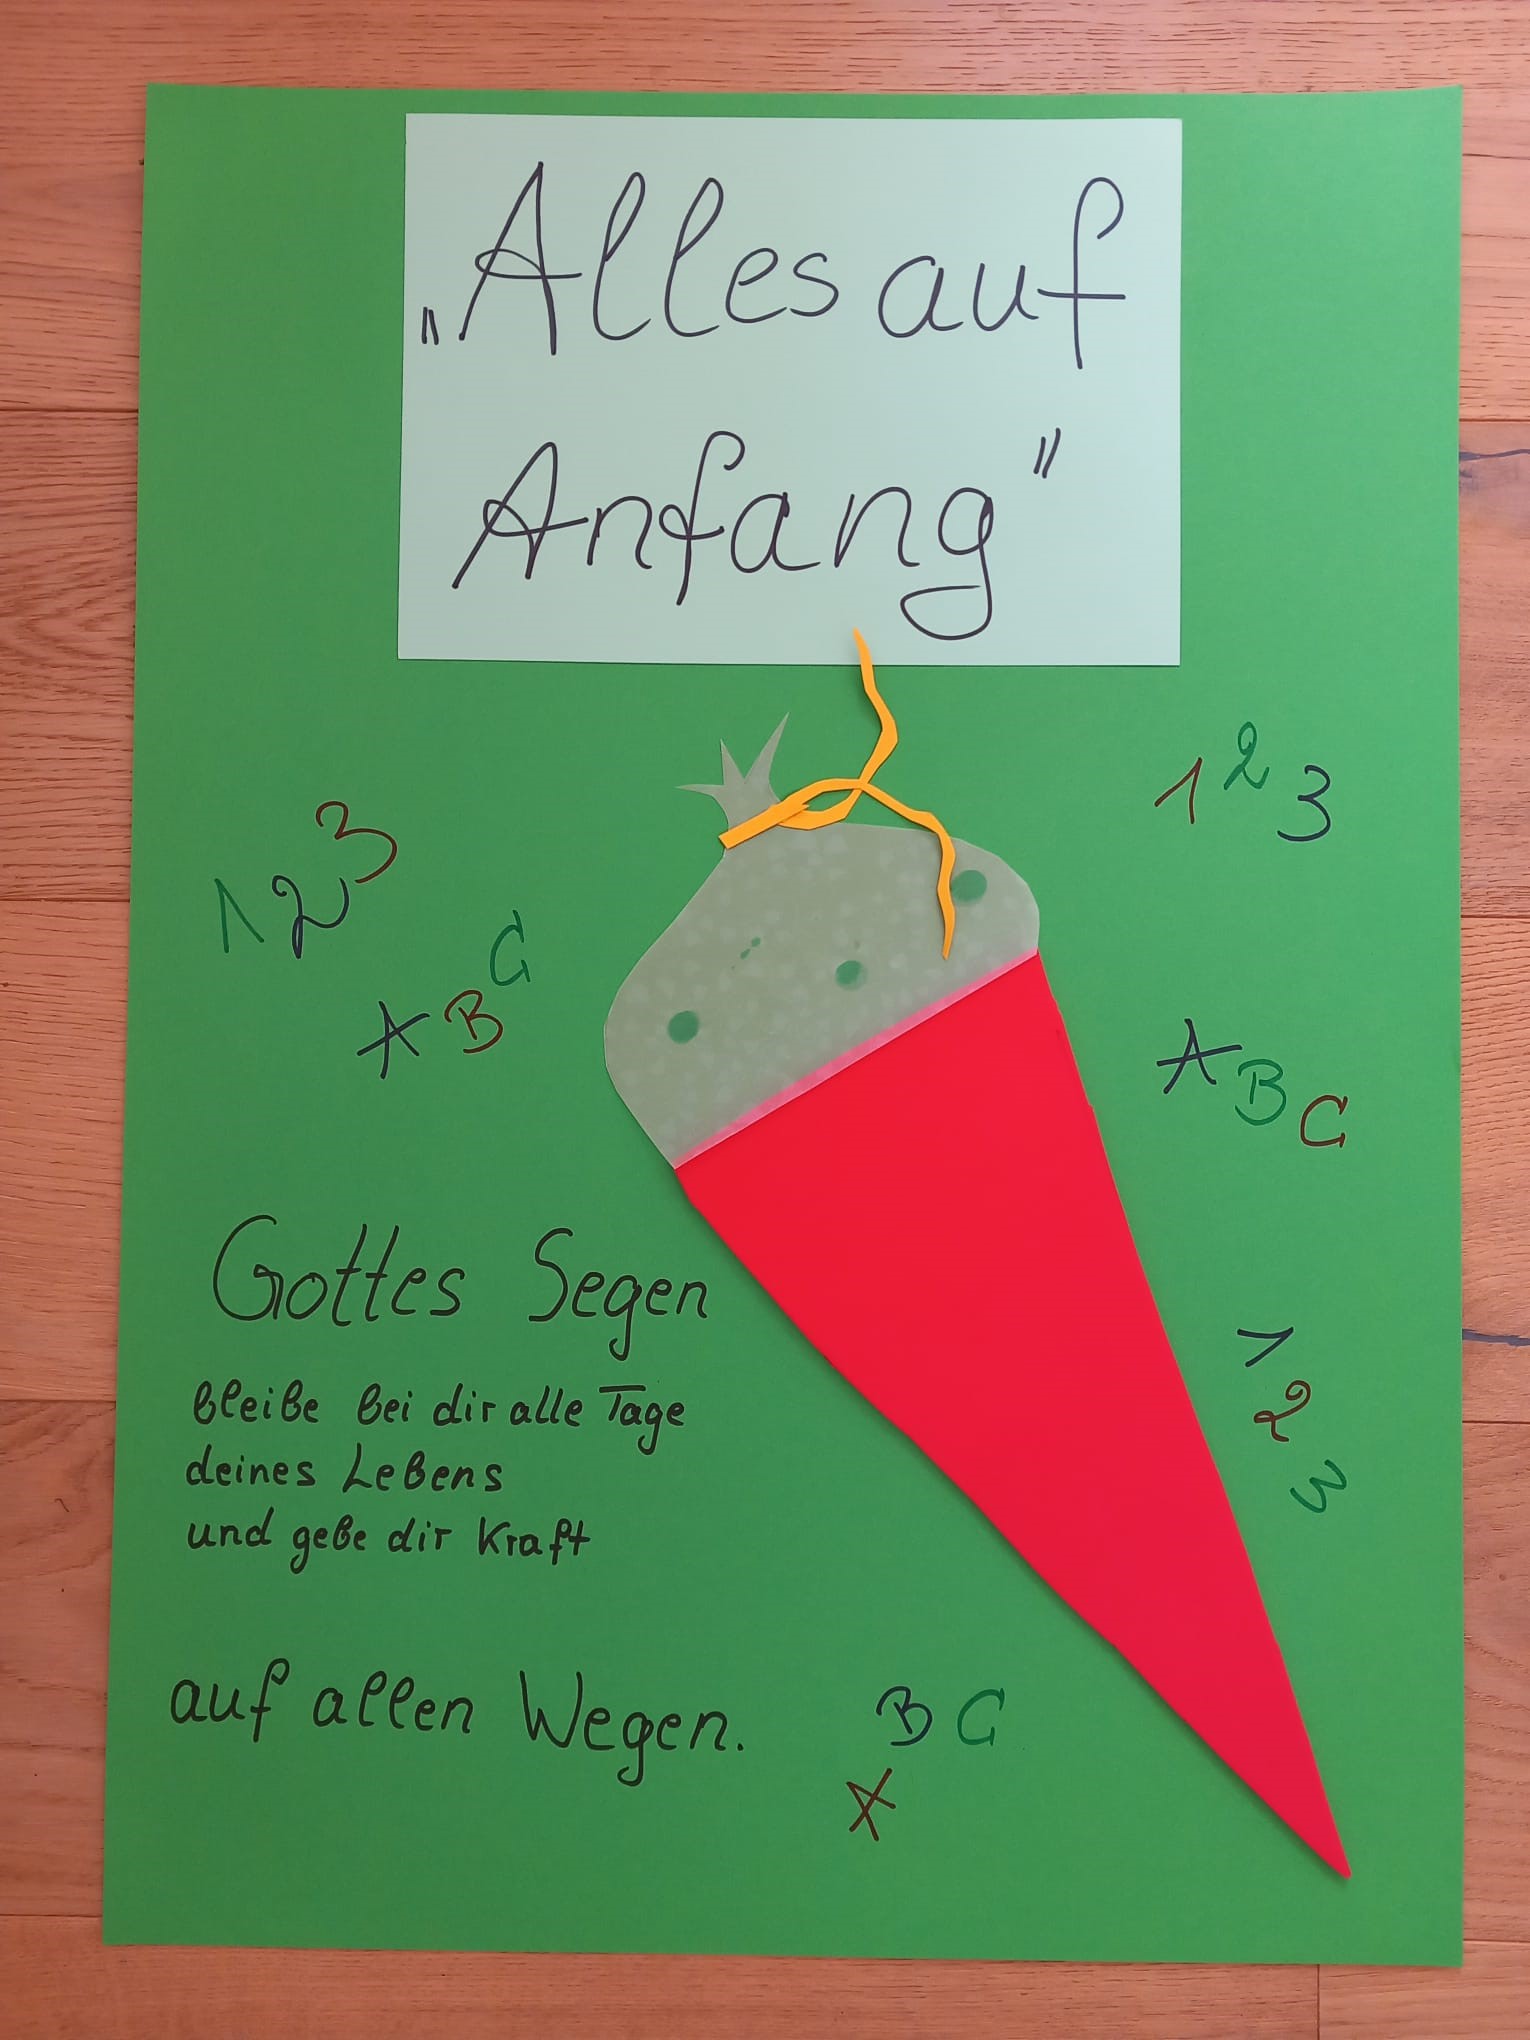 „Alles auf
Anfang"
1 2 3
1 2 3
A B C
A B C
1 2 3
Gottes Segen
bleibe bei dir alle Tage
deines Lebens
und gebe dir Kraft
auf allen Wegen.
A B C